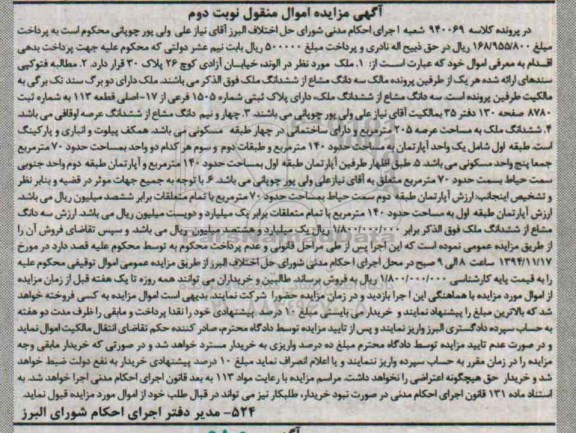 آگهی مزایده اموال منقول نوبت دوم
در پرونده کلاسه ۹۴۰۰۶۹ شعبه ۱ اجرای احکام مدنی شورای حل اختلاف البرز آقای نیاز علی ولی پور چوپانی محکوم است به پرداخت
مبلغ ۱۶۸/۹۵۵/۸۰۰ ریال در حق ذبیح اله نادری و پرداخت مبلغ ۵۰۰۰۰۰۰ ریال بابت نیم عشر دولتی که محکوم علیه جهت پرداخت بدهی
اقدام به معرفی اموال خود که عبارت است از: ۱. ملک مورد نظر در الوند، خیابان آزادی کوچ ۲۶ پلاک ۳۰ قرار دارد. ۲. مطالعه فتوکپی
سندهای ارائه شده هر یک از طرفین پرونده مالک سه دانگ مشاع از ششدانگ ملک فوق الذکر می باشند. ملک دارای دو برگ سند تک برگی به
مالکیت طرفین پرونده است. سه دانگ مشاع از ششدانگ ملک، دارای پلاک ثبتی شماره ۱۵۰۵ فرعی از ۱۷- اصلی قطعه ۱۱۳ به شماره ثبت
۸۷۸۰ صفحه ۱۳۰ دفتر ۳۵ بمالکیت آقای نیاز علی ولی پور چوپانی می باشند. ۳. چهار و نیم دانگ مشاع از ششدانگ عرصه اوقافی می باشد.
۴. ششدانگ ملک به مساحت عرصه ۲۰۵ مترمربع و دارای ساختمانی در چهار طبقه مسکونی می باشد. همکف پیلوت و انباری و پارکینگ
است. طبقه اول شامل یک واحد آپارتمان به مساحت حدود ۱۴۰ مترمربع و طبقات دوم و سوم هر کدام دو واحد بمساحت حدود ۷۰ مترمربع
جمعا پنج واحد مسکونی می باشد. ۵. طبق اظهار طرفین آپارتمان طبقه اول بمساحت حدود ۱۴۰ مترمربع و آپارتمان طبقه دوم واحد جنوبی
سمت حیاط بسمت حدود ۷۰ مترمربع متعلق به آقای نیازعلی ولی پور چوپانی می باشد. ۶. با توجه به جمیع جهات موثر در قضیه و بنابر نظر
و تشخیص اینجانب ارزش آپارتمان طبقه دوم سمت حیاط بمساحت حدود ۷۰ مترمربع با تمام متعلقات برابر ششصد میلیون ریال می باشد.
ارزش آپارتمان طبقه اول به مساحت حدود ۱۴۰ مترمربع با تمام متعلقات برابر یک میلیارد و دویست میلیون ریال می باشد. ارزش سه دانگ
مشاع از ششدانگ ملک فوق الذکر برابر ۱/۸۰۰/۰۰۰/۰۰۰ ریال یک میلیارد و هشتصد میلیون ریال می باشد و سپس تقاضای فروش آن را
از طریق مزایده عمومی نموده است که این اجرایی از طی مراحل قانونی و عدم پرداخت محکوم به توسط محکوم علیه قصد دارد در مورخ
۱۳۹۴/۱۱/۱۷ ساعت ۸ الی ۹ صبح در محل اجرای احکام مدنی شورای حل اختلاف البرز از طریق مزایده عمومی اموال توقیفی محکوم علیه
را به قیمت پایه کارشناسی ۱/۸۰۰/۰۰۰/۰۰۰ ریال به فروش برساند. طالبین و خریداران می توانند همه روزه تا یک هفته قبل از زمان مزایده
از اموال مورد مزایده با هماهنگی این اجرا بازدید و در زمان مزایده حضورا شرکت نمایند. بدیهی است اموال مزایده به کسی فروخته خواهد
شد که بالاترین مبلغ را پیشنهاد نمایند و خریدار می بایستی مبلغ ۱۰ درصد پیشنهادی خود را نقدا پرداخت و مابقی را ظرف مدت دو هفته
به حساب سپرده دادگستری البرز واریز نمایند و پس از تایید مزایده توسط دادگاه محترم، صادر کننده حکم تقاضای انتقال مالکیت اموال نماید
و در صورت عدم تایید مزایده توسط دادگاه محترم مبلغ ده درصد واریزی به خریدار مسترد خواهد شد و در صورتی که خریدار مابقی وجه
مزایده را در زمان مقرر به حساب سپرده واریز ننمایند و یا اعلام انصراف نماید مبلغ ۱۰ درصد پیشنهادی خریدار به نفع دولت ضبط خواهد
شد و خریدار حق هیچگونه اعتراضی را نخواهد داشت. مراسم مزایده با رعایت مواد ۱۱۳ به بعد قانون اجرای احکام مدنی اجرا خواهد شد. به
استناد ماده ۱۳۱ قانون اجرای احکام مدنی در صورت نبود خریدار، طلبکار نیز می تواند در قبال طلب خود از اموال مورد مزایده قبول نماید.
۵۲۴- مدیر دفتر اجرای احکام شورای البرز